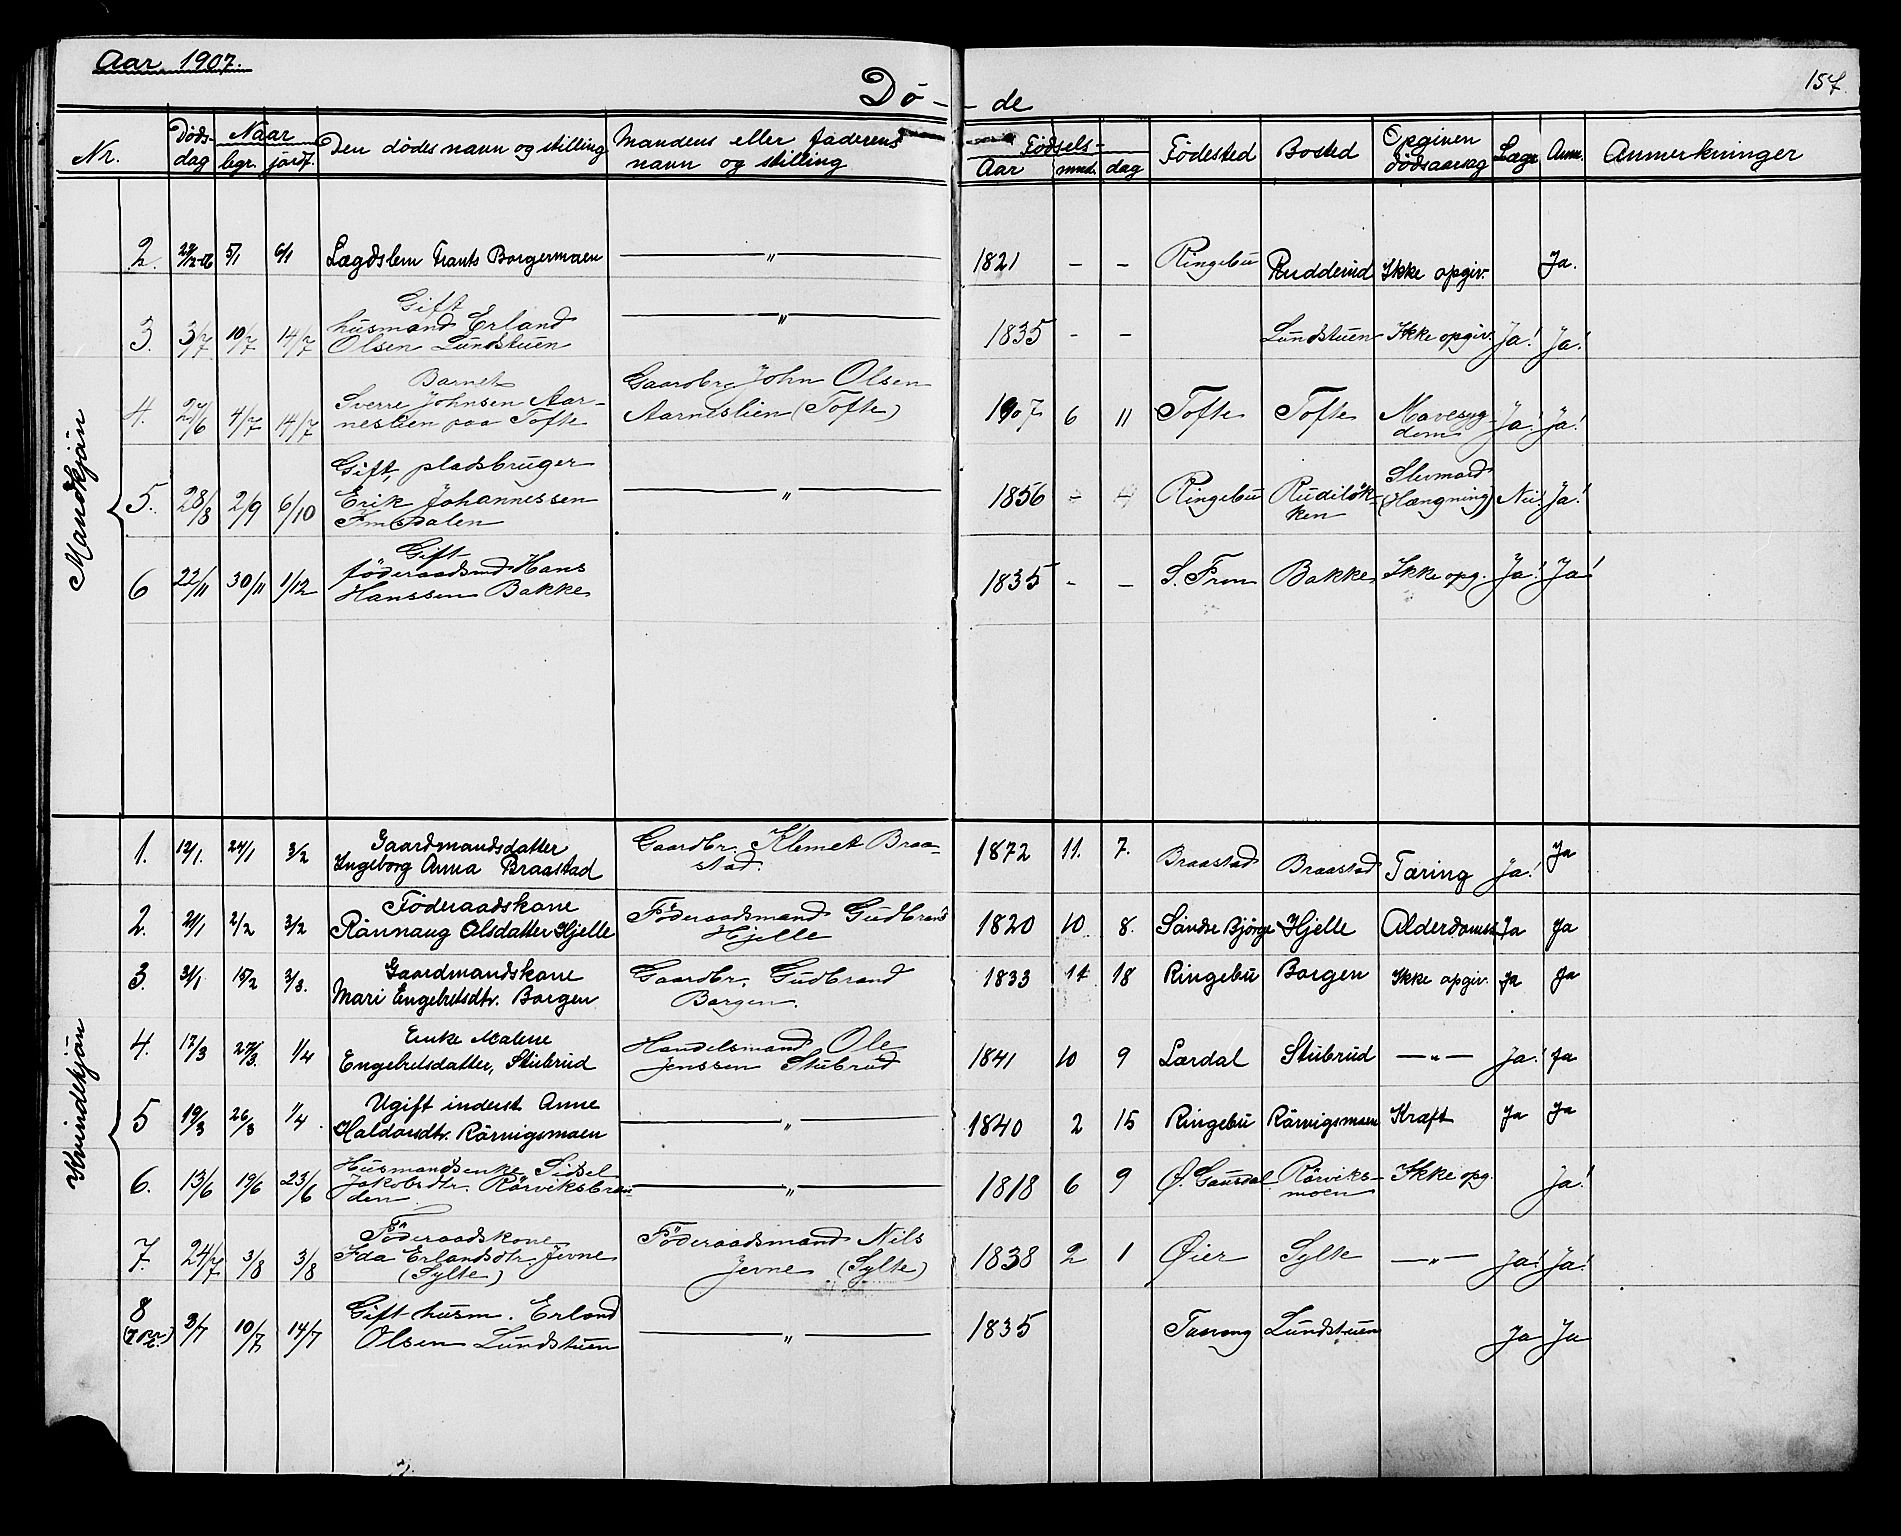 Aar 1907.
157.
Dø- -de
Nr. Døds-dag Naar begr. jordf. Den dødes navn og stilling Mandens eller faderens navn og stilling Fødsels- Aar mnd. dag Fødested Bosted Opgiven dødsaarsag Læge Anm. Anmerkninger
Mandkjøn
2. 5/1 6/1 Lægdslem Frants Borgermoen — „ — 1821 – – Ringebu Rudderud Ikke opgiv. Ja.
Gift
3. 3/7 10/7 14/7 husmand Erland — „ — 1835 – – Lundstuen Ikke opgiv. Ja! Ja!
Olsen Lundstuen
Barnet Gaardbr. John Olsen
4. 4/7 14/7 Sverre Johnsen Aar- Aarnestien (Tofte) 1907 6 11 Tofte Tofte Mavesyg- Ja! Ja!
nestien paa Tofte dom
Gift, pladsbruger Slvmord
5. 28/8 2/9 6/10 Erik Johannessen — „ — 1856 – – Ringebu Rudiløk- (Hængning) Nei! Ja!
Imsdalen ken
Gift
6 22/11 30/11 1/12 føderaadsmd Hans 1835 – – S. Fron Bakke Ikke opg. Ja! Ja!
Hanssen Bakke
Kvindekjøn
1. 12/1. 24/1 3/2 Gaardmandsdatter Gaardbr. Klemet Braa- 1872 11. 7. Braastad Braastad Tæring Ja! Ja
Ingeborg Anna Braastad stad.
Føderaadskone Føderaadsmand Gudbrand
2. 21/1 2/2 3/2 Rønnaug Olsdatter Hjelle Hjelle 1820 10 8. Søndre Bjørge Hjelle Alderdomss. Ja Ja
3. 31/1 15/2 3/3. Gaardmandskone Gaardbr. Gudbrand 1833 18 Ringebu Borgen Ikke opgiv. Ja Ja
Mari Engebretsdtr. Borgen Borgen.
4. 17/3 27/3. 1/4 Enke Malene Handelsmand Ole 1841 10 9 Lærdal Stubrud —„— Ja! Ja
Engebretsdatter, Stubrud Jenssen Stubrud
5 19/3 26/3 1/4 Ugift inderst Anne — „ — 1840 2 15 Ringebu Rørvigsmoen Kræft Ja Ja
Haldorsdtr. Rørvigsmoen
6. 13/6 19/6 23/6 Husmandsenke Sidsel — „ — 1818 6 9 Ø. Gausdal Rørviks- Ikke opg. Ja!
Jakobsdtr. Rørviksbraa- moen
den.
Føderaadskone Føderaadsmand Nils
7. 24/7 3/8 3/8 Ida Erlandsdtr. Jevne Jevne (Sylte) 1838 2 1 Øier Sylte —„— Ja! Ja!
(Sylte)
8 3/7 10/7 14/7 Gift husm. Erland — „ — 1835 Lundstuen Ja Ja
Olsen Lundstuen